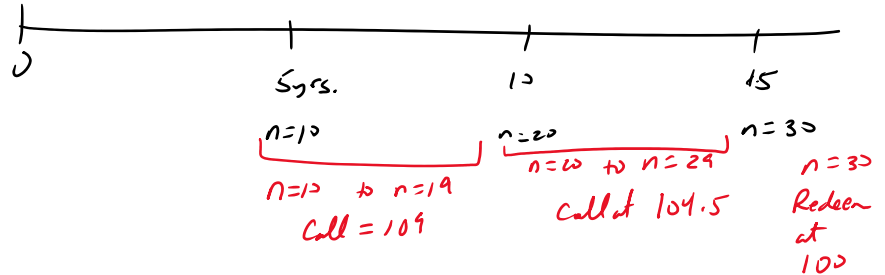 0
5yrs.
10
15
n=10
n=20
n=30
n=10 to n=19
Call = 109
n=20 to n=29
Call at 104.5
n=30
Redeem
at
100